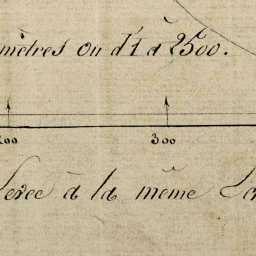 mètres ou d'1 à 2500.
200 300
à la même